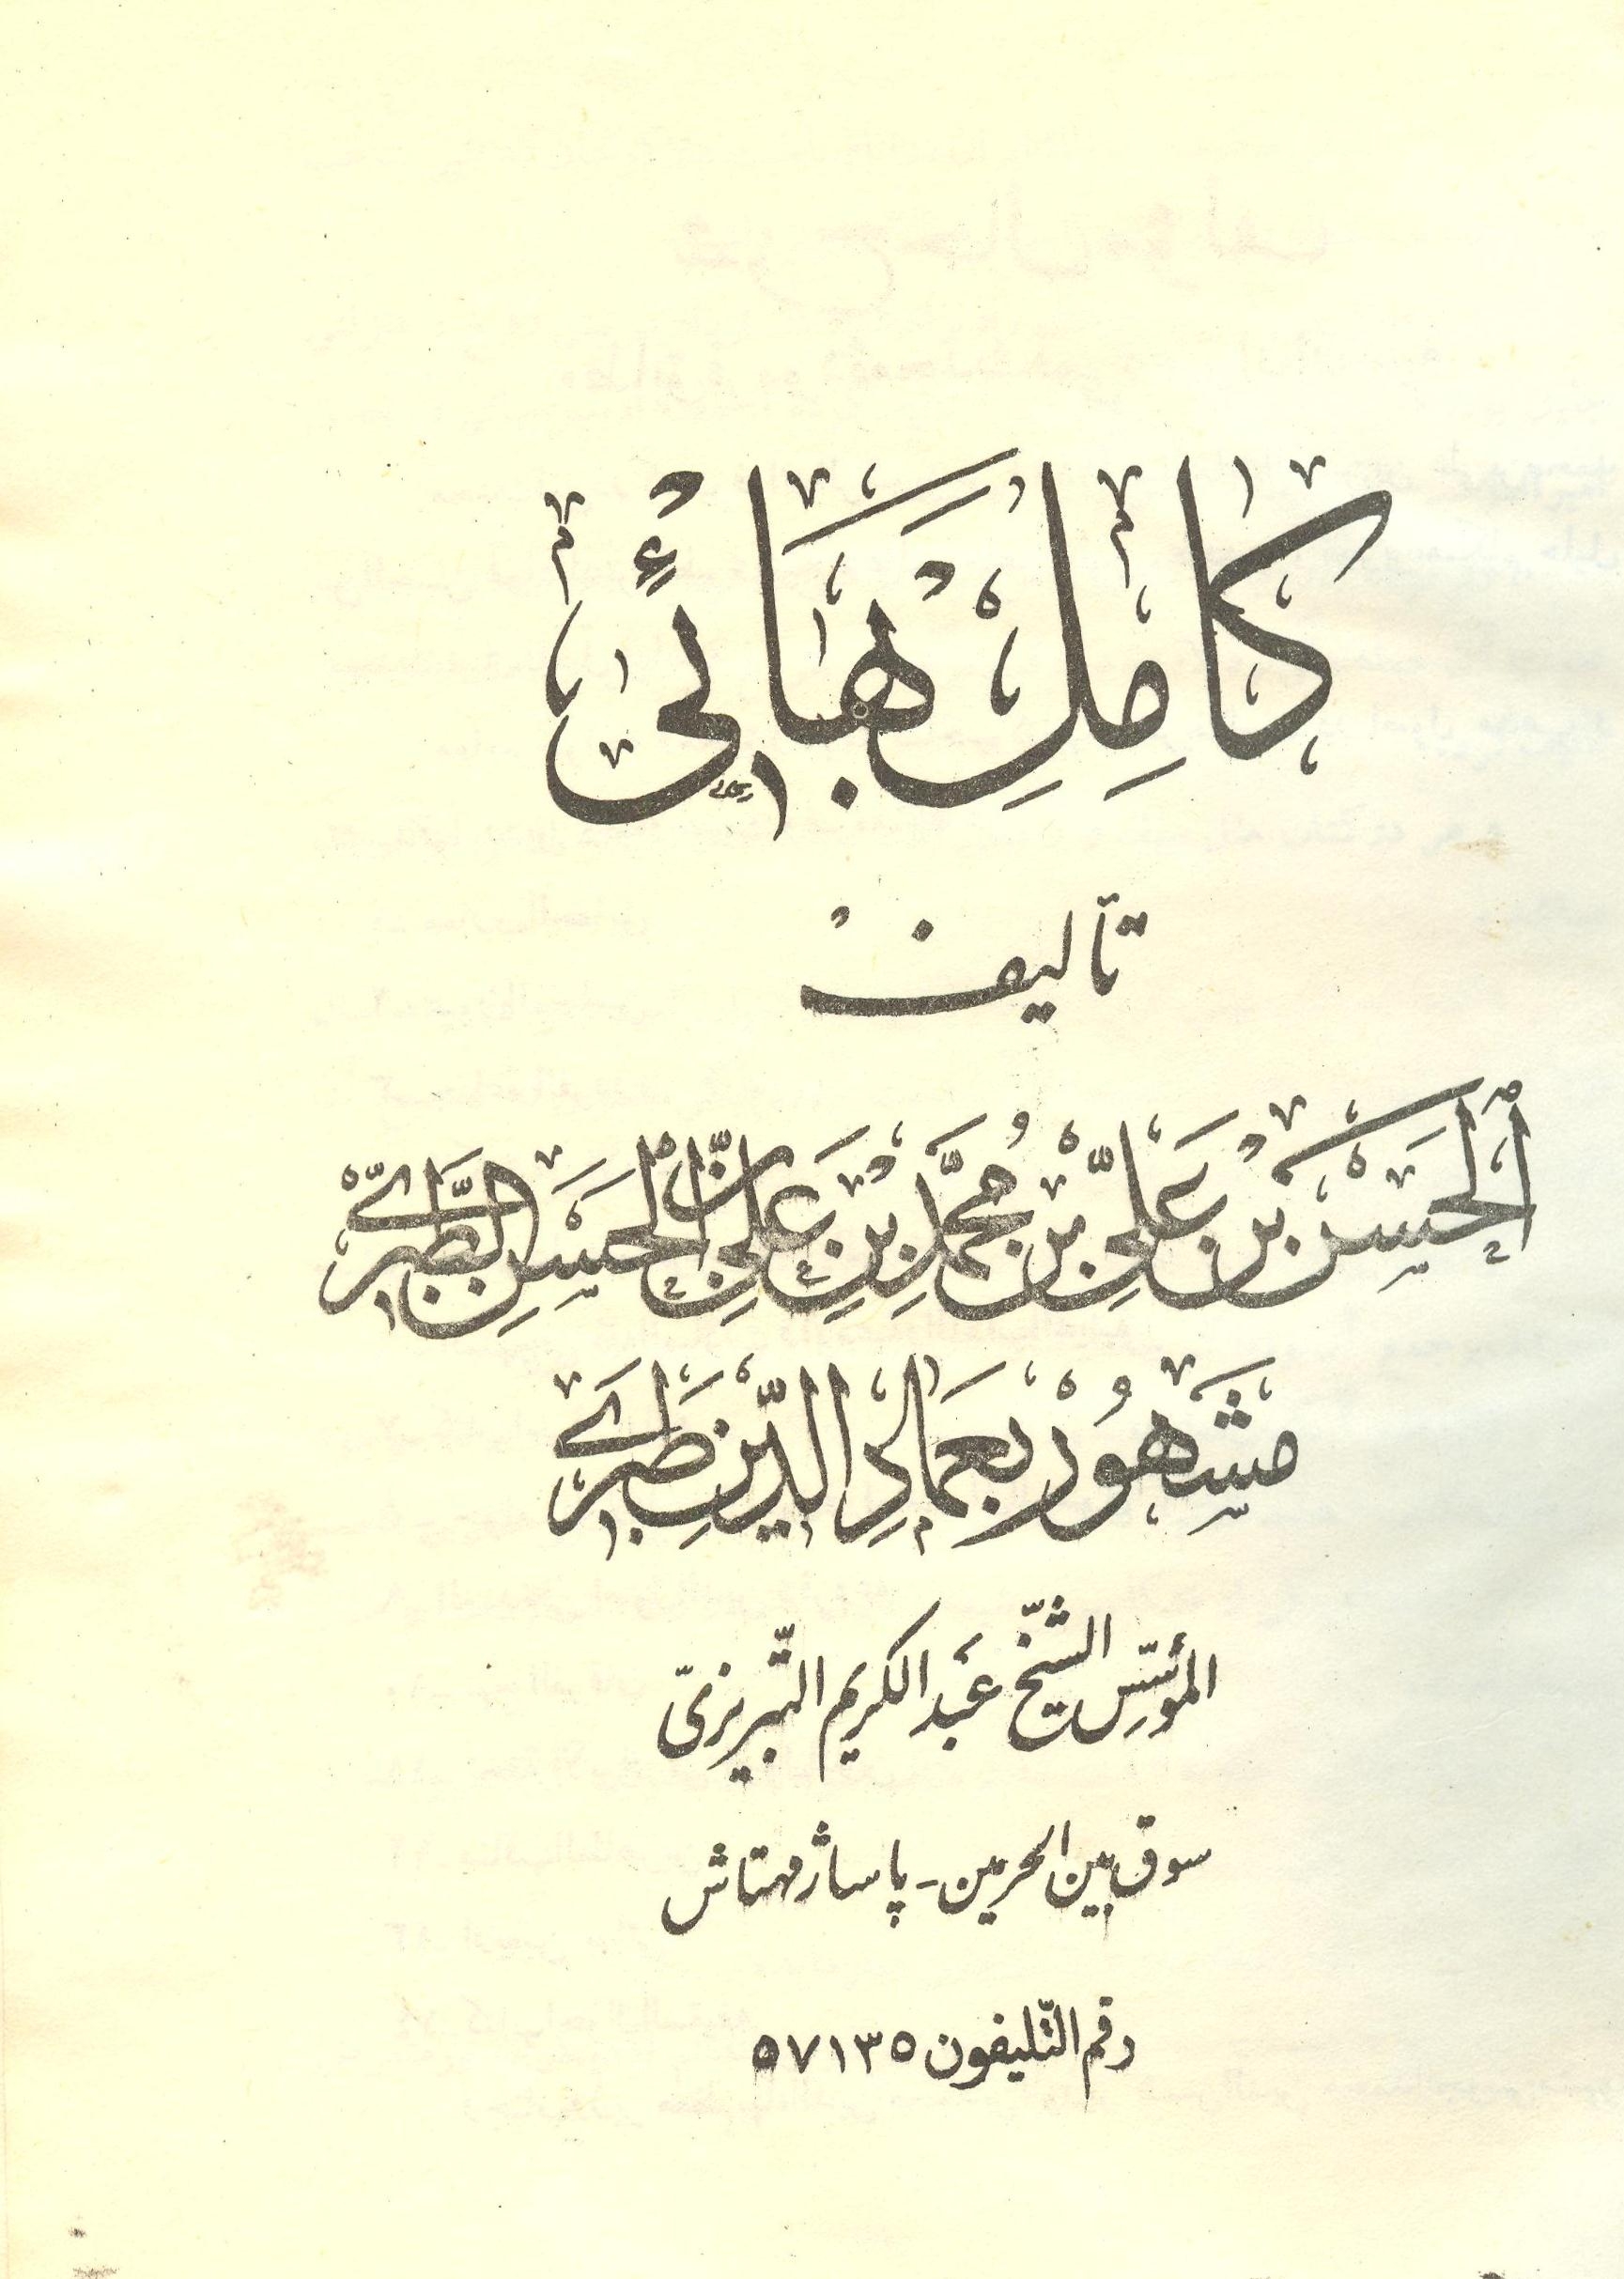 كَامِلِ بَهَائیْ
تأليف
اَلْحَسَنِ بْنِ عَلِیِّ بْنِ مُحَمَّدِ بْنِ عَلِیِّ بْنِ الْحَسَنِ الطَّبَرِیِّ
مَشْهُورْ بِعِمَادِالدّینِ طَبَری
المؤسّس الشّيخ عَبدالكريم التّبريزیّ
سوق بين الحرمين - پاساژ مهتاش
رقم التّليفون ٥٧١٣٥